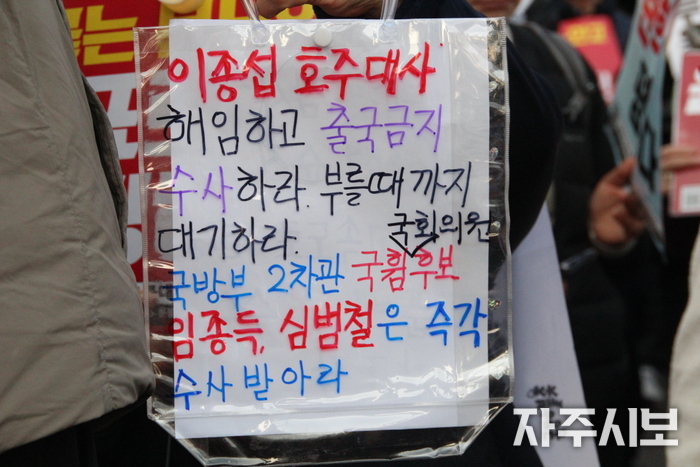 이종섭 호주대사
해임하고 출국금지
수사하라. 부를때까지
대기하라. 국회의원
국방부 2차관 국힘후보
임종득, 심범철은 즉각
수사받아라
자주시보